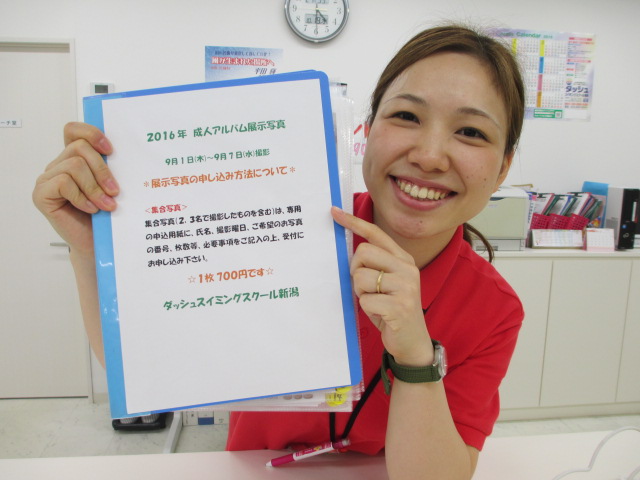 2016年 成人アルバム展示写真
9月1日(木)～9月7日(水)撮影
＊展示写真の申し込み方法について＊
＜集合写真＞
集合写真(2、3名で撮影したものを含む)は、専用
の申込用紙に、氏名、撮影曜日、ご希望のお写真
の番号、枚数等、必要事項をご記入の上、受付に
お申し込み下さい。
☆1枚 700円です☆
ダッシュスイミングスクール新潟
Calendar
ダッシュ